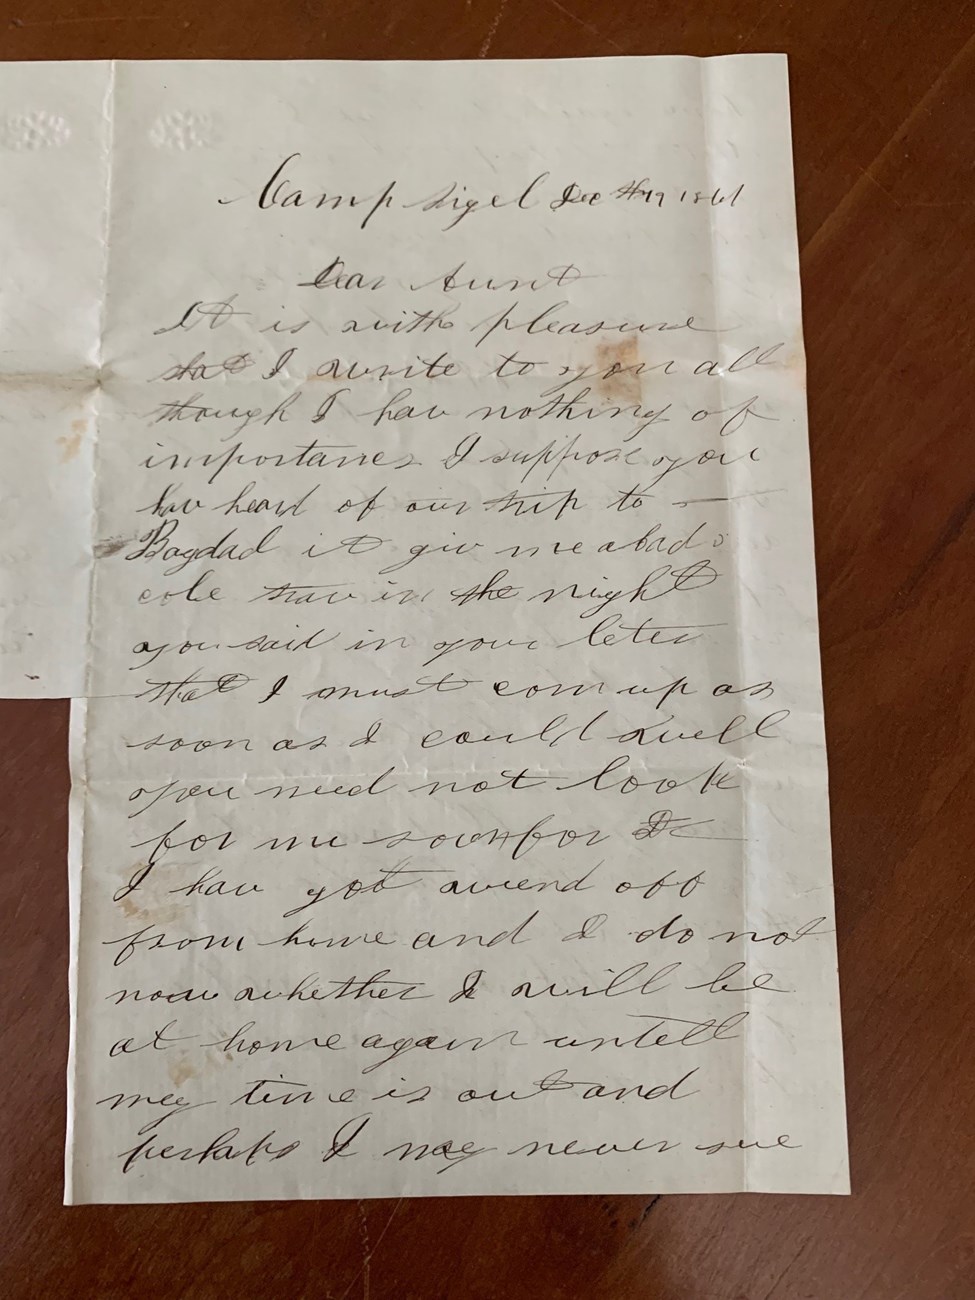 Camp Sigel Dec 19 1861
Dear Aunt
It is with pleasure
that I write to you all
though I hav nothing of
importance I suppose you
hav heard of our trip to
Bagdad it giv me a bad
cole trav in the night
you said in your leter
that I must com up as
soon as I could well
you need not look
for me soon for
I hav got wend off
from home and I do not
now whether I will be
at home again untell
my time is out and
perhaps I may never see